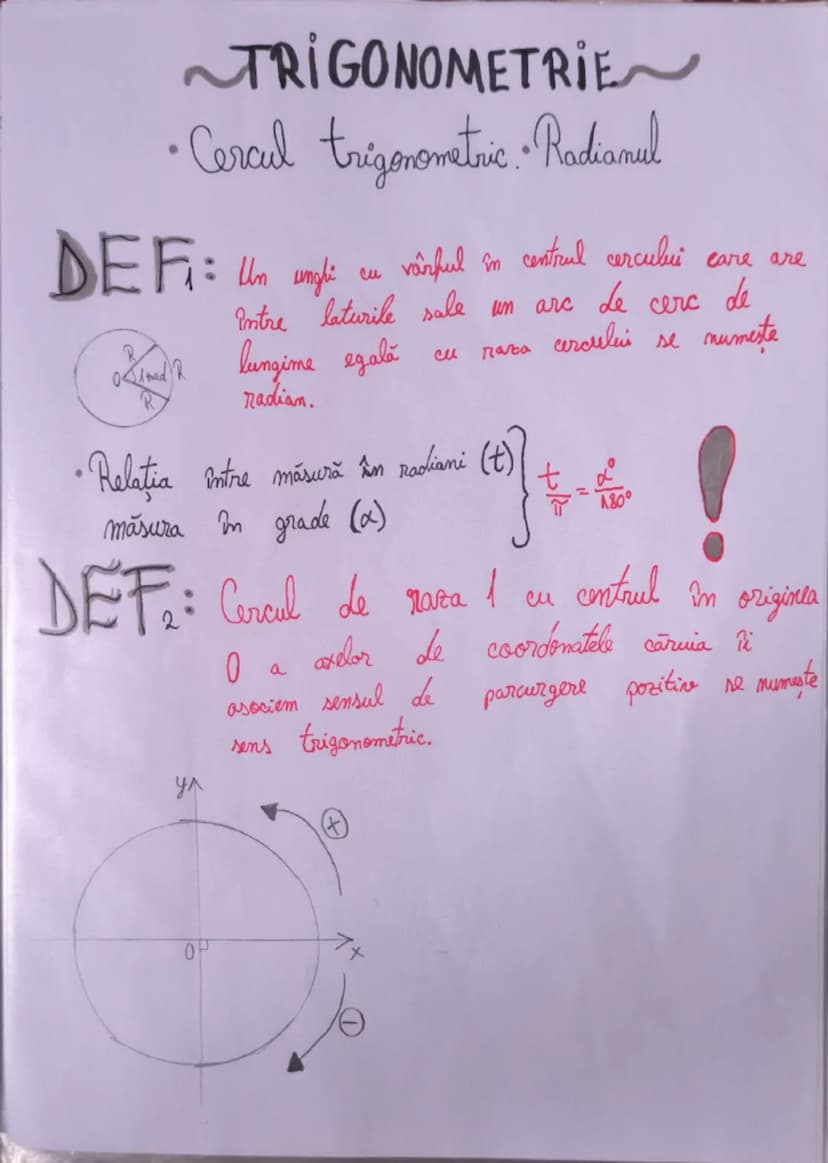 ~TRiGONOMETRiE~
• Cercul trigonometric. • Radianul
DEF1: Un unghi cu vârful în centrul cercului care are
între laturile sale un arc de cerc de
lungime egală cu raza cercului se numește
radian.
R
O 1rad R
R
• Relația între măsură în radiani (t)
măsura în grade (α)
t/π = α°/180°
!
DEF2: Cercul de raza 1 cu centrul în originea
O a axelor de coordonatele căruia îi
asociem sensul de parcurgere pozitiv se numește
sens trigonometric.
y
+
O
x
−